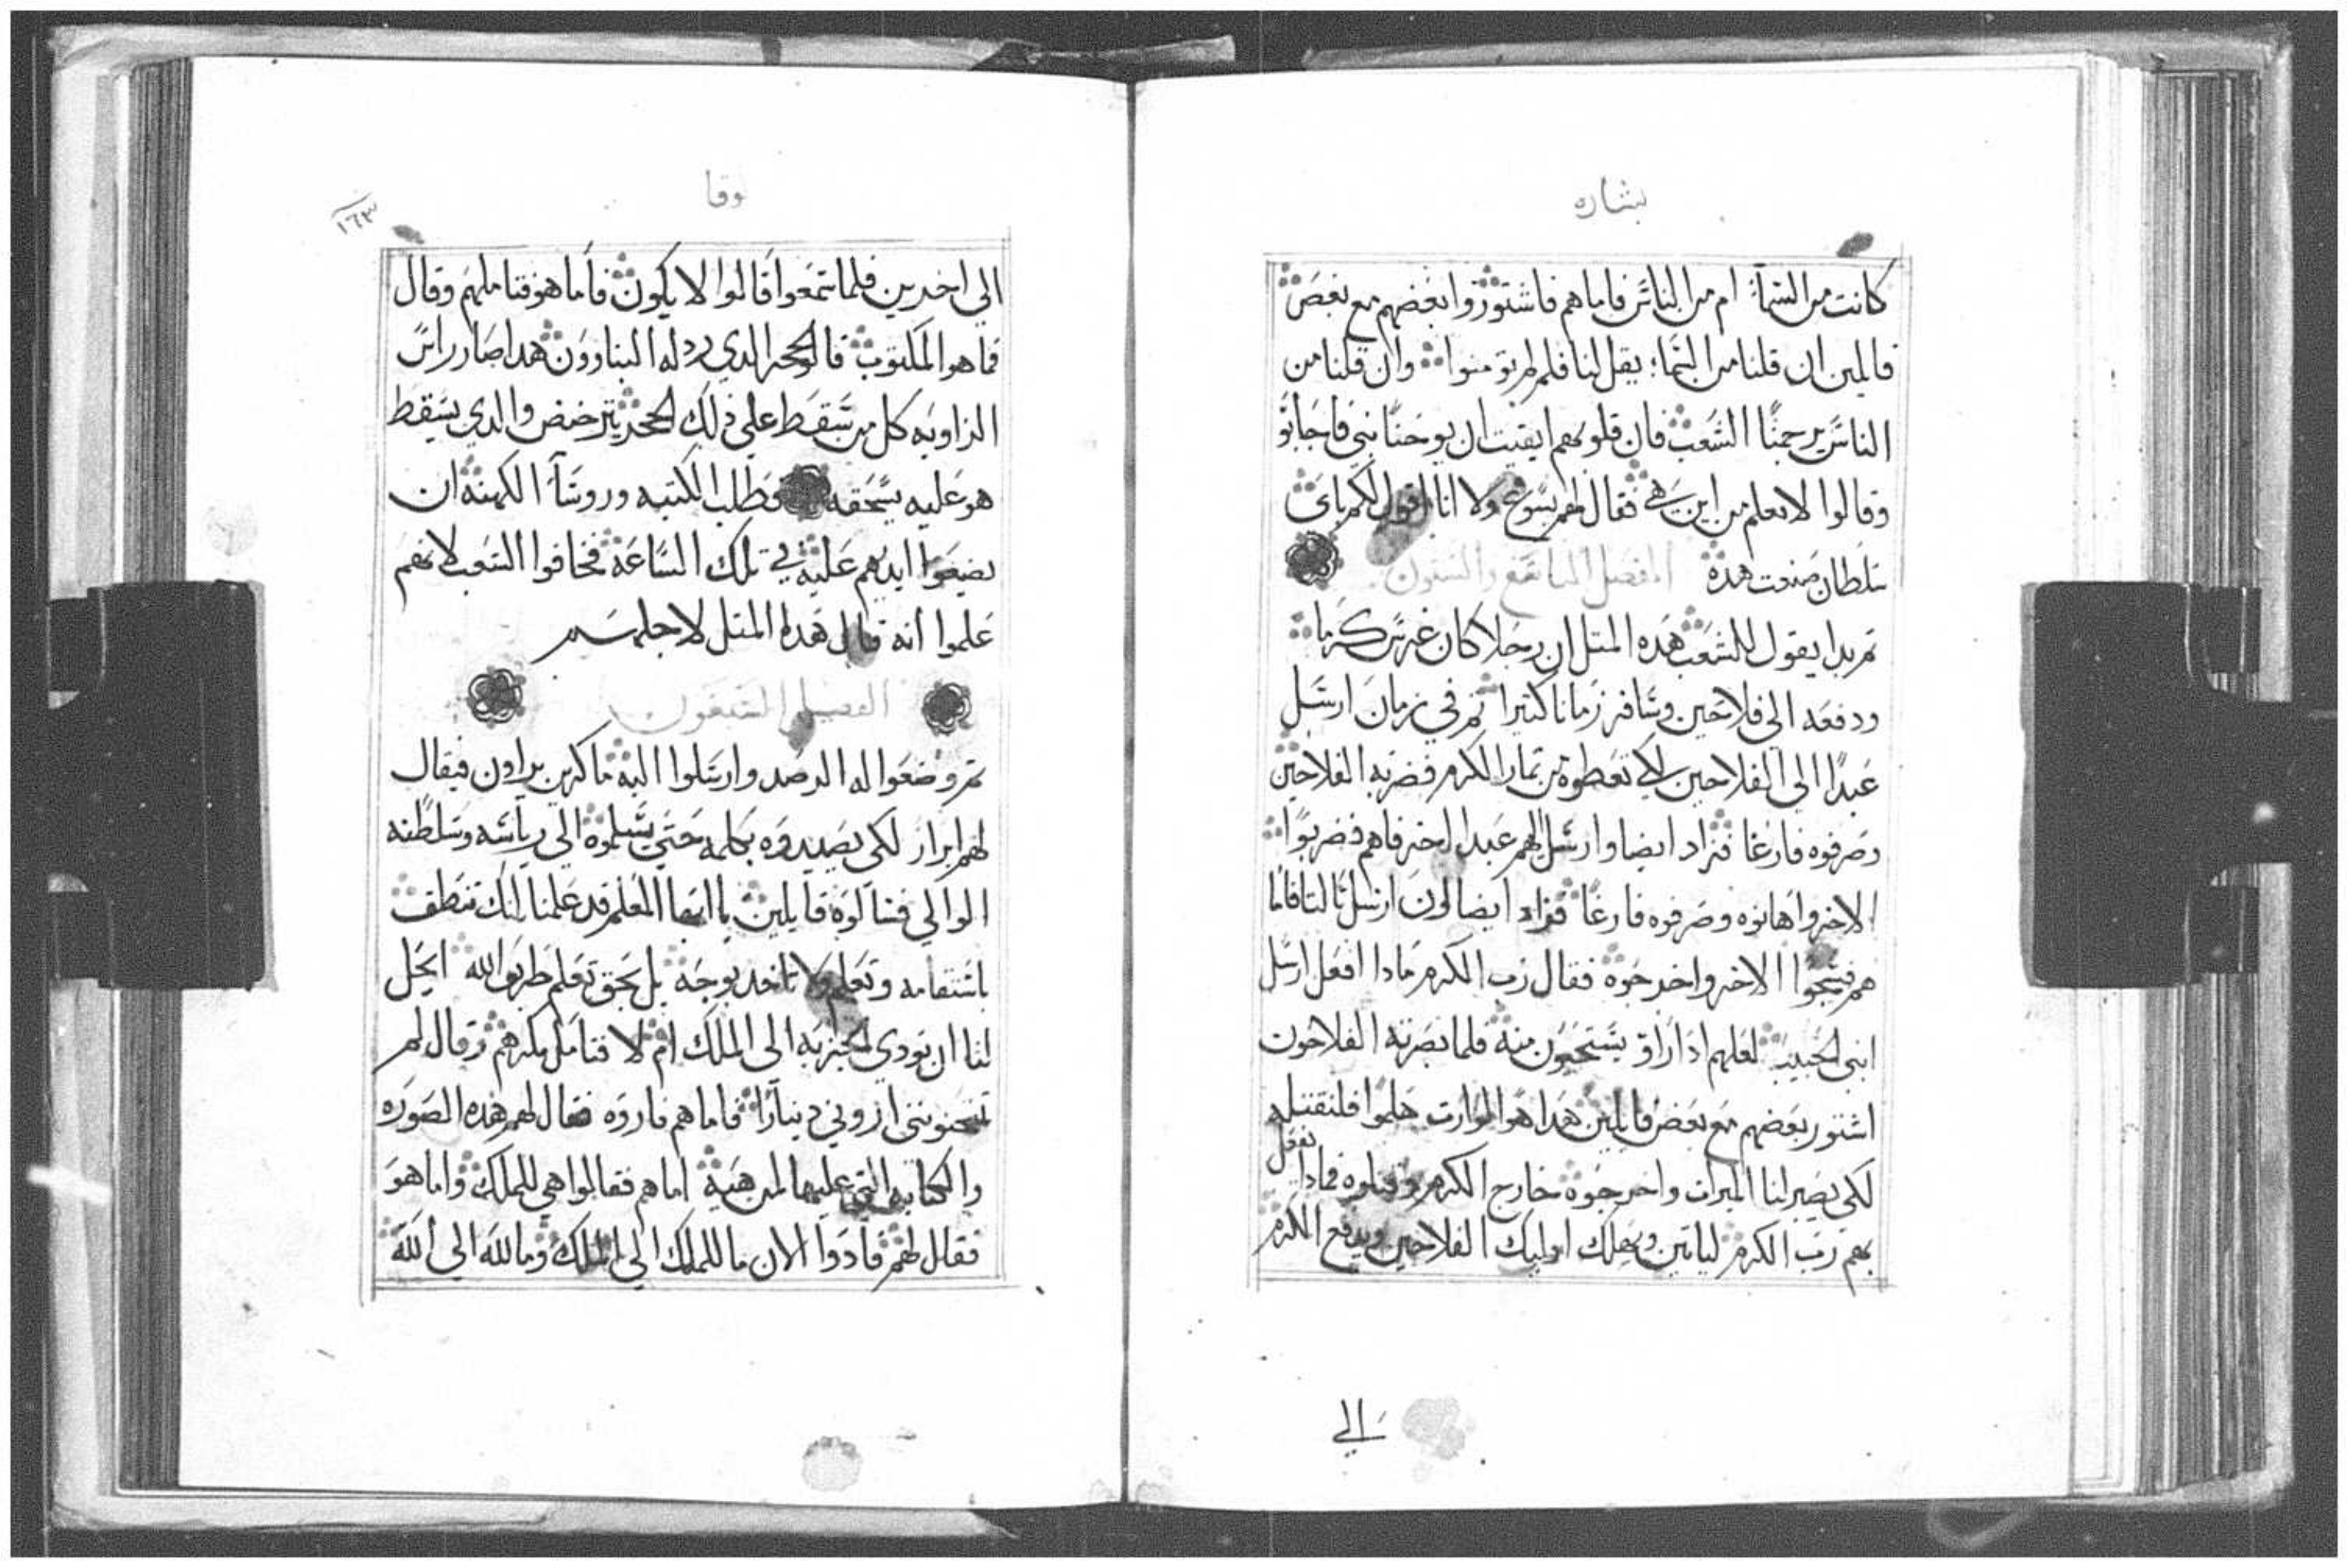 بشاره
كانت من السماء ام من الناس فاما هم فاشتوروا بعضهم مع بعض
قايلين ان قلنا من السماء يقل لنا فلم لم تومنوا وان قلنا من
الناس يرجمنا الشعب فان قلوبهم ايقنت ان يوحنا نبي فاجابوا
وقالوا لا نعلم من اين هي فقال لهم يسوع ولا انا اقول لكم باي
سلطان صنعت هده الفصل التاسع والستون
ثم بدا يقول للشعب هده المثل ان رجلا كان غرس كرما
ودفعه الي فلاحين وسافر زمانا كثيرا ثم في زمان ارسل
عبدا الي الفلاحين لكي تعطوه من ثمار الكرم فضربه الفلاحين
وصرفوه فارغا فزاد ايضا وارسل اليهم عبدا اخر فاهم فضربوا
الاخر واهانوه وصرفوه فارغا فزاد ايضا لون ارسل ثالثا فاما
هم فشجوا الاخر واخرجوه فقال رب الكرم مادا افعل ارسل
ابني الحبيب لعلهم ادا راوه يستحيون منه فلما نصرته الفلاحون
اشتور بعضهم مع بعض قايلين هدا هو الوارت هلموا فلنقتله
لكي يصير لنا الميرات واخرجوه خارج الكرم وقتلوه فمادا يفعل
بهم رب الكرم لياتين ويهلك اوليك الفلاحين ويدفع الكرم
الي
لوقا
١٦٣
الي اخرين فلما سمعوا قالوا لا يكون فاما هو فتاملهم وقال
فما هو المكتوب فالحجر الدي ردله البناوون هدا صار راس
الزاويه كل من سقط علي دلك الحجر يترضض والدي يسقط
هو عليه يسحقه فطلب الكتبه وروسآ الكهنه ان
يضيعوا ايديهم عليه في تلك الساعه فخافوا الشعب لانهم
علموا انه قال هده المثل لاجلهم
الفصل السبعون
ثم وضعوا له الرصد وارسلوا اليه ماكرين يراون فيقال
لهم ابرار لكي يصيدوه بكلمه حتي يسلموه الي رياسه وسلطنه
الوالي فسالوه قايلين يا ايها المعلم قد علمنا انك تنطق
باستقامه وتعلم ولا تاخد بوجه بل بحق تعلم طريق الله ايحل
لنا ان نودي الجزيه الي الملك ام لا فتامل مكرهم وقال لم
تمتحنونني اروني دينارا فاما هم فاروه فقال لهم هده الصوره
والكتابه التي عليها لمن هيه اما هم فقالوا هي للملك واما هو
فقال لهم فادوا الان ما للملك الي الملك وما لله الي الله